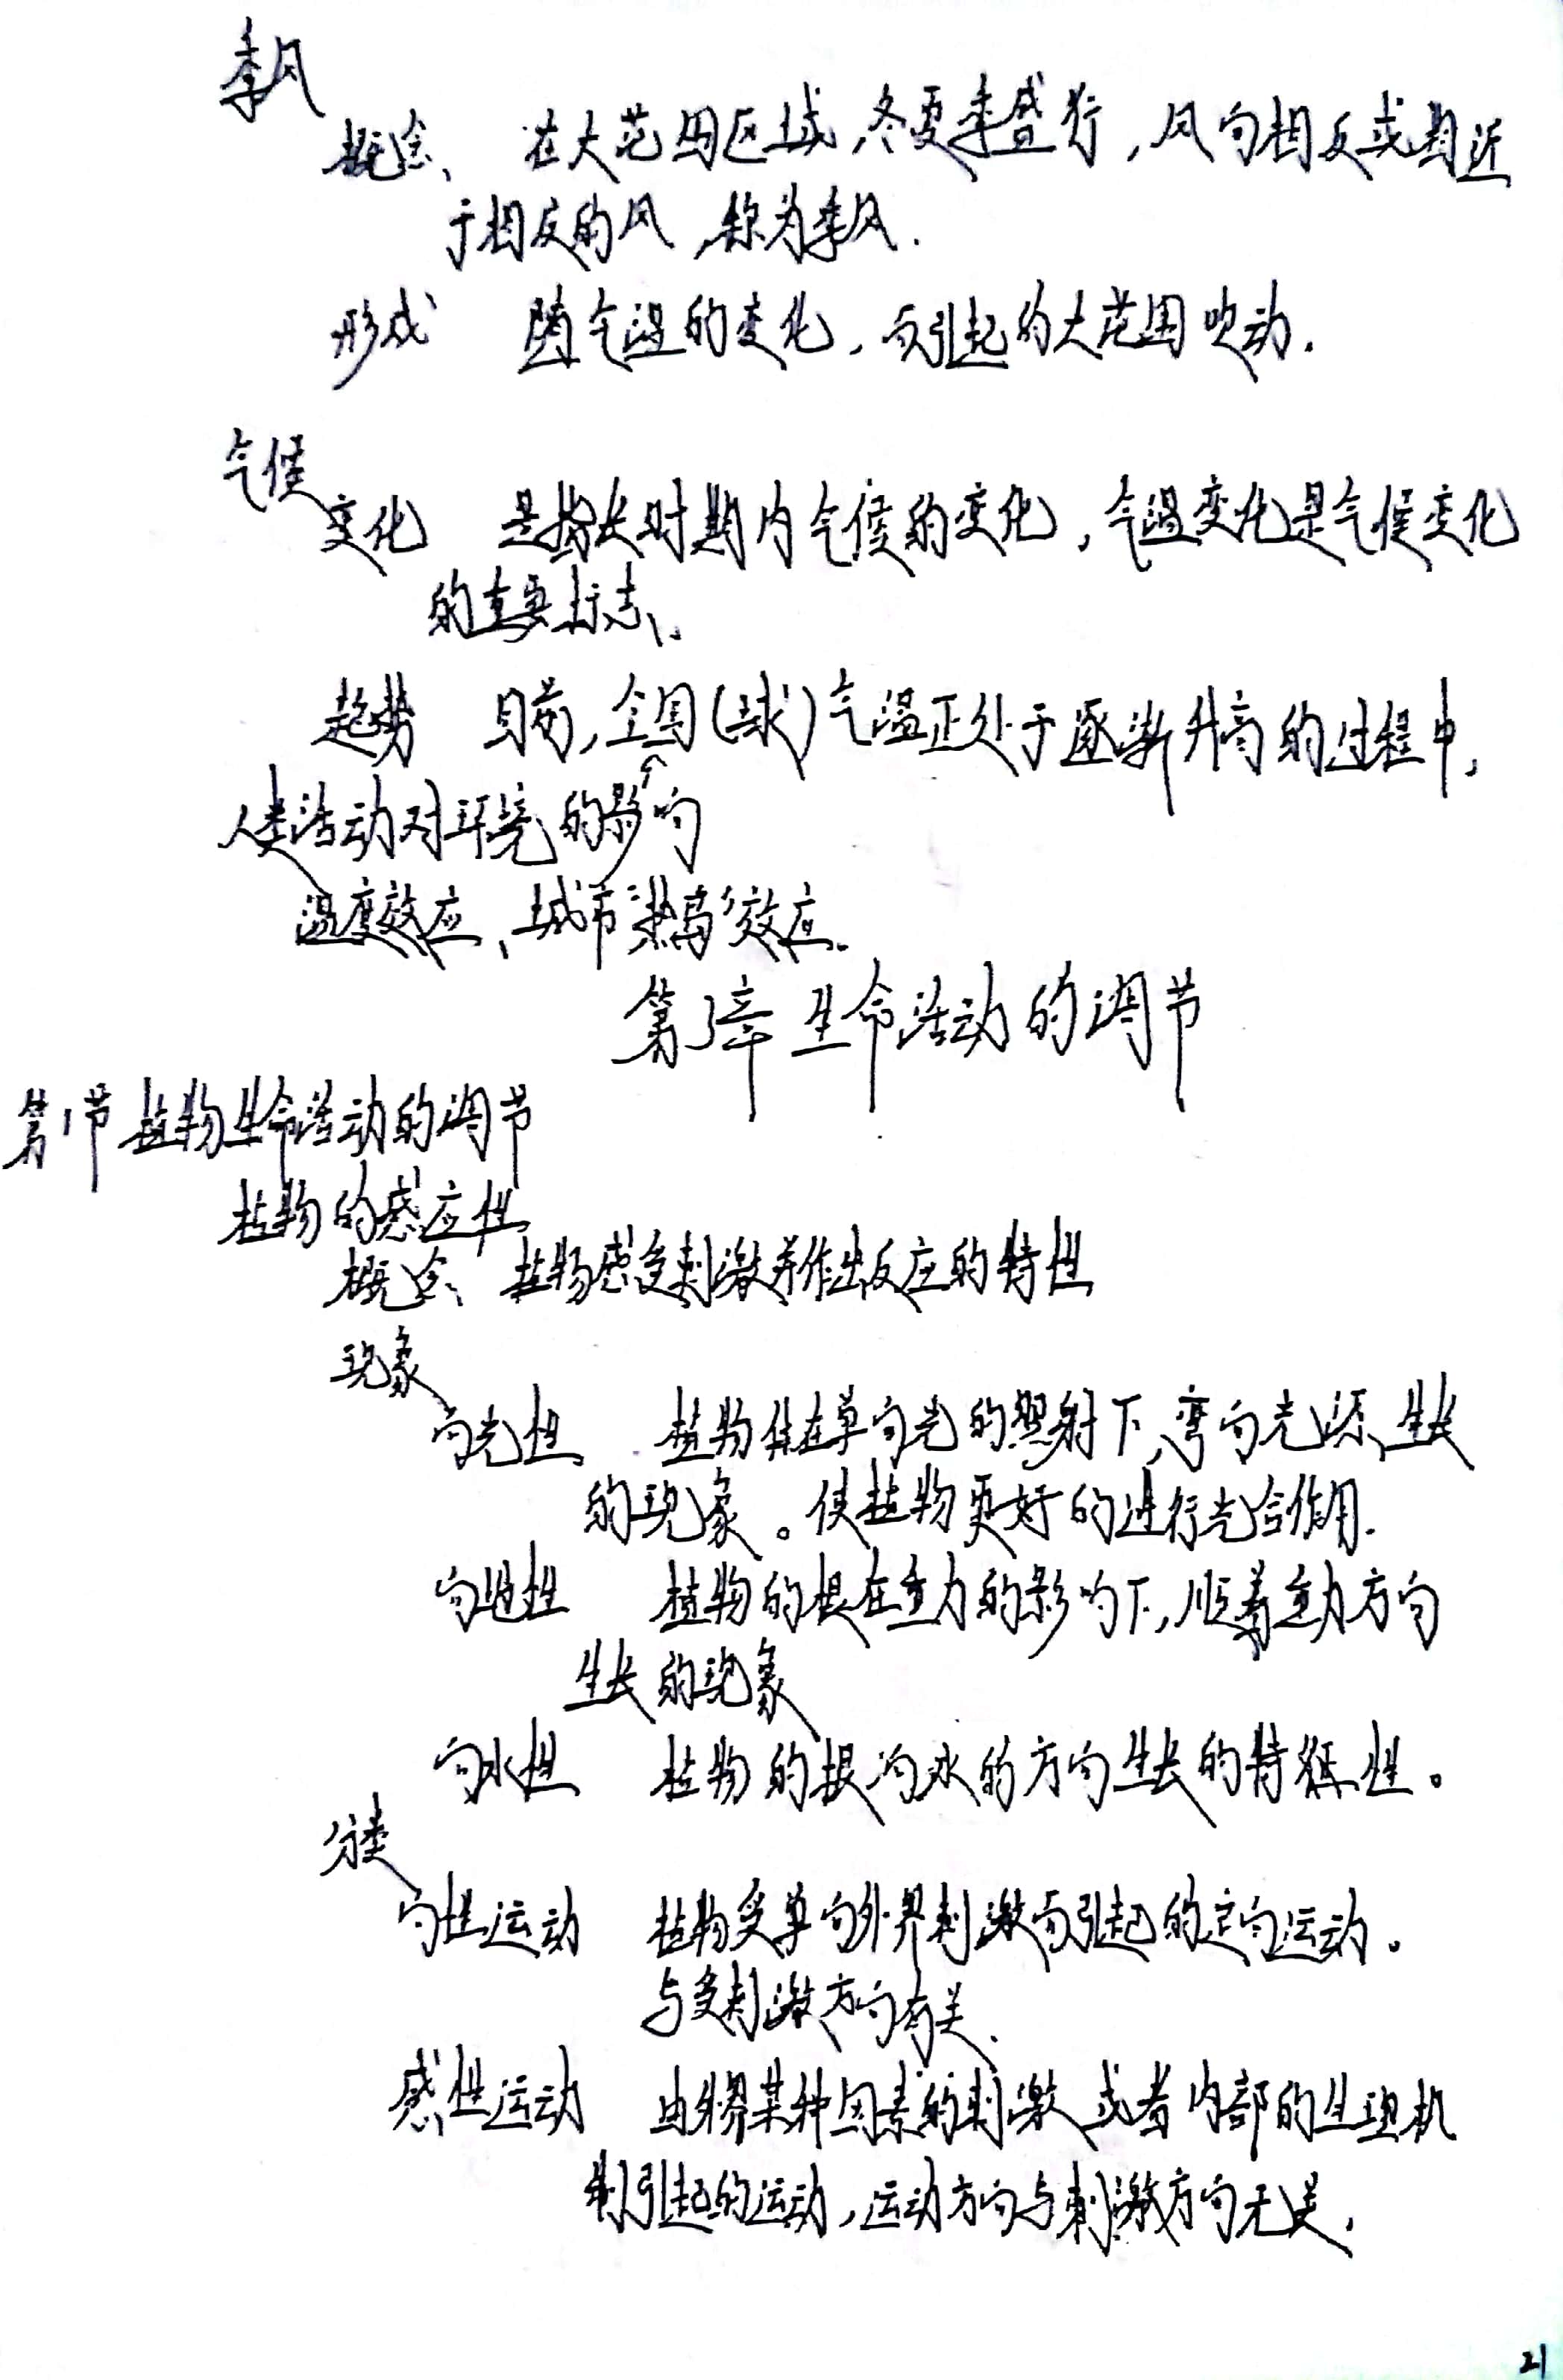 季风
概念、 在大范围区域,冬夏季盛行,风向相反或相近
于相反的风,称为季风.
形成 随气温的变化,而引起的大范围吹动.
气候
变化 是指长时期内气候的变化,气温变化是气候变化
的重要标志.
趋势 目前,全国(球)气温正处于逐渐升高的过程中,
人类活动对环境的影响
温度效应、城市“热岛”效应.
第3章 生命活动的调节
第1节 植物生命活动的调节
植物的感应性
概念、 植物感受刺激并作出反应的特性
现象
向光性 植物体在单向光的照射下,弯向光源生长
的现象。使植物更好的进行光合作用.
向地性 植物的根在重力的影响下,顺着重力方向
生长的现象
向水性 植物的根向水的方向生长的特征性。
分类
向性运动 植物受单向外界刺激而引起的定向运动。
与受刺激方向有关.
感性运动 由外界某种因素的刺激或者内部的生理机
制引起的运动,运动方向与刺激方向无关.
21